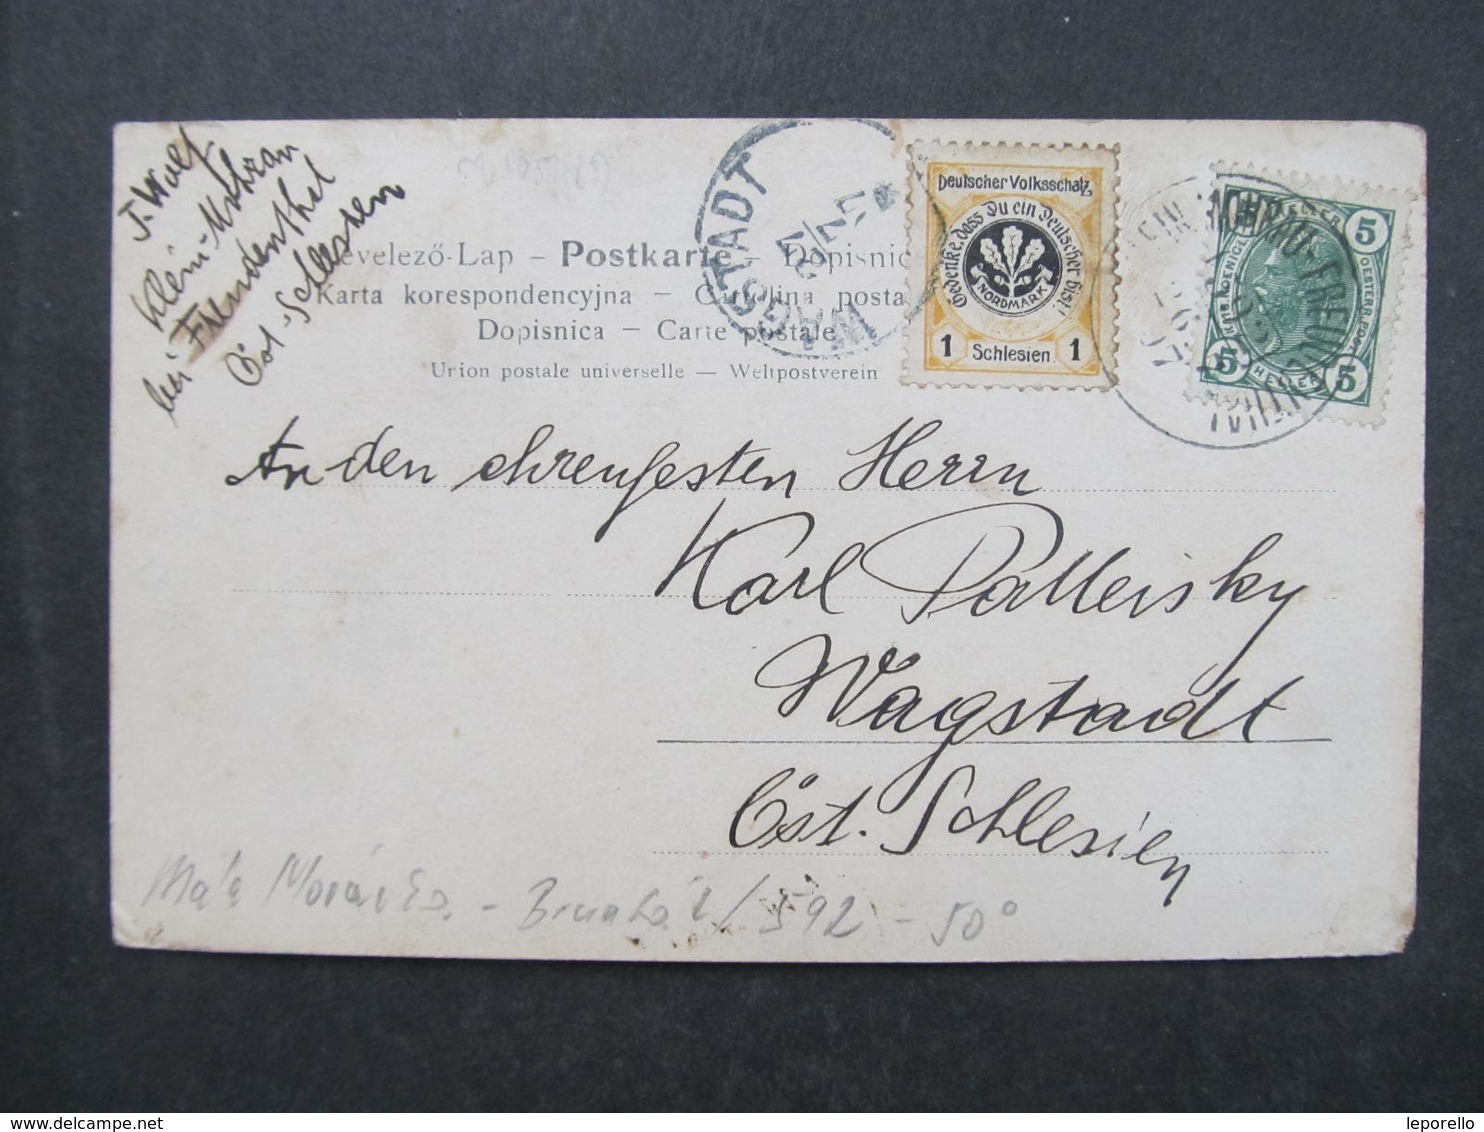 J. Wolf
Klein-Mohrau
bei Freudenthal
Öst-Schlesien
Levelező-Lap — Postkarte — Dopisnice
Karta korespondencyjna — Cartolina postale
Dopisnica — Carte postale
Union postale universelle — Weltpostverein
WAGSTADT
Deutscher Volksschatz
Gedenke, dass Du ein Deutscher bist!
NORDMARK
1 Schlesien 1
KLEIN MOHRAU-FREUDENTHAL
5 5
5 HELLER 5
An den ehrenfesten Herrn
Karl Palleisky
Wagstadt
Öst. Schlesien
Malá Morávka - Bruntál / 592 - 50°
leporello